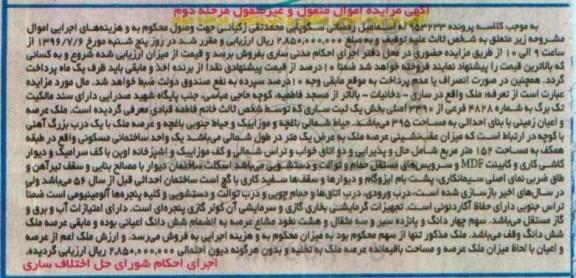 آگهی مزایده اموال منقول و غیرمنقول مرحله دوم
به موجب کلاسه پرونده ۹۵۳۲۳۳ له اسماعیل رمضانی سکوپایی محمدتقی زکیانی جهت وصول محکوم به و هزینه‌های اجرایی اموال
مشروحه زیر متعلق به شخص ثالث علیه توقیف و به مبلغ ۲،۸۵۰،۰۰۰،۰۰۰ ریال ارزیابی و مقرر شد در روز پنج شنبه مورخ ۱۳۹۶/۷/۶ از
ساعت ۹ الی ۱۰ از طریق مزایده حضوری در محل دفتر اجرای احکام مدنی ساری بفروش برسد و قیمت از میزان ارزیابی شده شروع و به کسانی
که بالاترین قیمت را پیشنهاد نمایند فروخته خواهد شد ضمنا ۱۰ درصد از قیمت پیشنهادی نقدا از برنده اخذ و مابقی باید ظرف یک ماه پرداخت
گردد. همچنین در صورت انصراف یا عدم پرداخت به موقع مابقی وجه ۱۰ درصد سپرده به نفع صندوق دولت ضبط خواهد شد. مال مورد مزایده
عبارت است از تعرفه: ملک واقع در ساری - دخانیات - بالاتر از مسجد فاطمیه، کوچه حاجی عباسی، جنب پایگاه شهید صدرایی دارای سند مالکیت
تک برگ به شماره ۴۸۲۸ فرعی از ۳۳۹۰ اصلی بخش یک ثبت ساری که توسط شخص ثالث خانم فاطمه قبادی معرفی گردیده است. ملک عرصه
و اعیان زمینی با بنای احداثی به مساحت ۳۹۵ می‌باشد. حیاط شمالی باغچه و موزاییک و حیاط جنوبی باغچه و عرصه ملک با یک درب بزرگ آهنی
با کوچه در ارتباط است که میزان عقب‌نشینی عرصه ملک به عرض یک متر در طول شمالی می‌باشد یک واحد ساختمانی مسکونی واقع در طبقه
همکف به مساحت ۱۵۲ متر مربع شامل حال و پذیرایی و دو اتاق خواب و تراس شمالی و کف موزاییک و آشپزخانه اوپن با کف سرامیک و دیوار
کاشی کاری و کابینت MDF و سرویس‌های مستقل حمام و توالت و دستشویی می‌باشد. اسکلت ساختمان دیوار با مصالح بنایی و سقف تیرآهن و
طاق ضربی نمای اصلی سیمانکاری، پشت بام ایزوگام و دیوارها و سقف‌ها سفید کاری با گچ است ساختمان احداثی قبل از سال ۵۶ می‌باشد ولی
در سال‌های اخیر بازسازی شده است، درب ورودی، درب اتاق‌ها و حمام چوبی و درب توالت و دستشویی و کلیه پنجره‌ها آلومینیومی است ضمنا
تراس جنوبی دارای حفاظ آکاردئونی است. تجهیزات گرمایشی بخاری گازی و سرمایشی آن کولر گازی پنجره‌ای است. دارای امتیازات آب و برق و
گاز مستقل می‌باشد. سهم چهار دانگ و پانزده سیر و سه مثقال و هشت نخود مشاع عرصه به انضمام شش دانگ اعیانی بوده و مابقی عرصه ملک
شش دانگ وقف می‌باشد. ملک مذکور تنها از سهم محکوم بود به میزان محکوم به و هزینه اجرایی به فروش می‌رسد. و ارزش ملک اعم از عرصه
و اعیان با لحاظ میزان ملک عرصه و مساحت باقیمانده عرصه ملک به تخلیه و بدون هرگونه دیون احتمالی ۲،۸۵۰،۰۰۰،۰۰۰ ریال ارزیابی گردیده.
اجرای احکام شورای حل اختلاف ساری